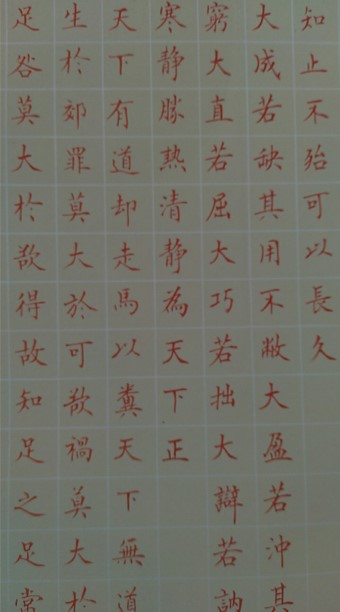 知止不殆可以長久
大成若缺其用不敝大盈若沖其
窮大直若屈大巧若拙大辯若訥
寒静勝熱清静為天下正
天下有道却走馬以糞天下無道
生扵郊罪莫大於可欲禍莫大扵
足咎莫大扵欲得故知足之足常